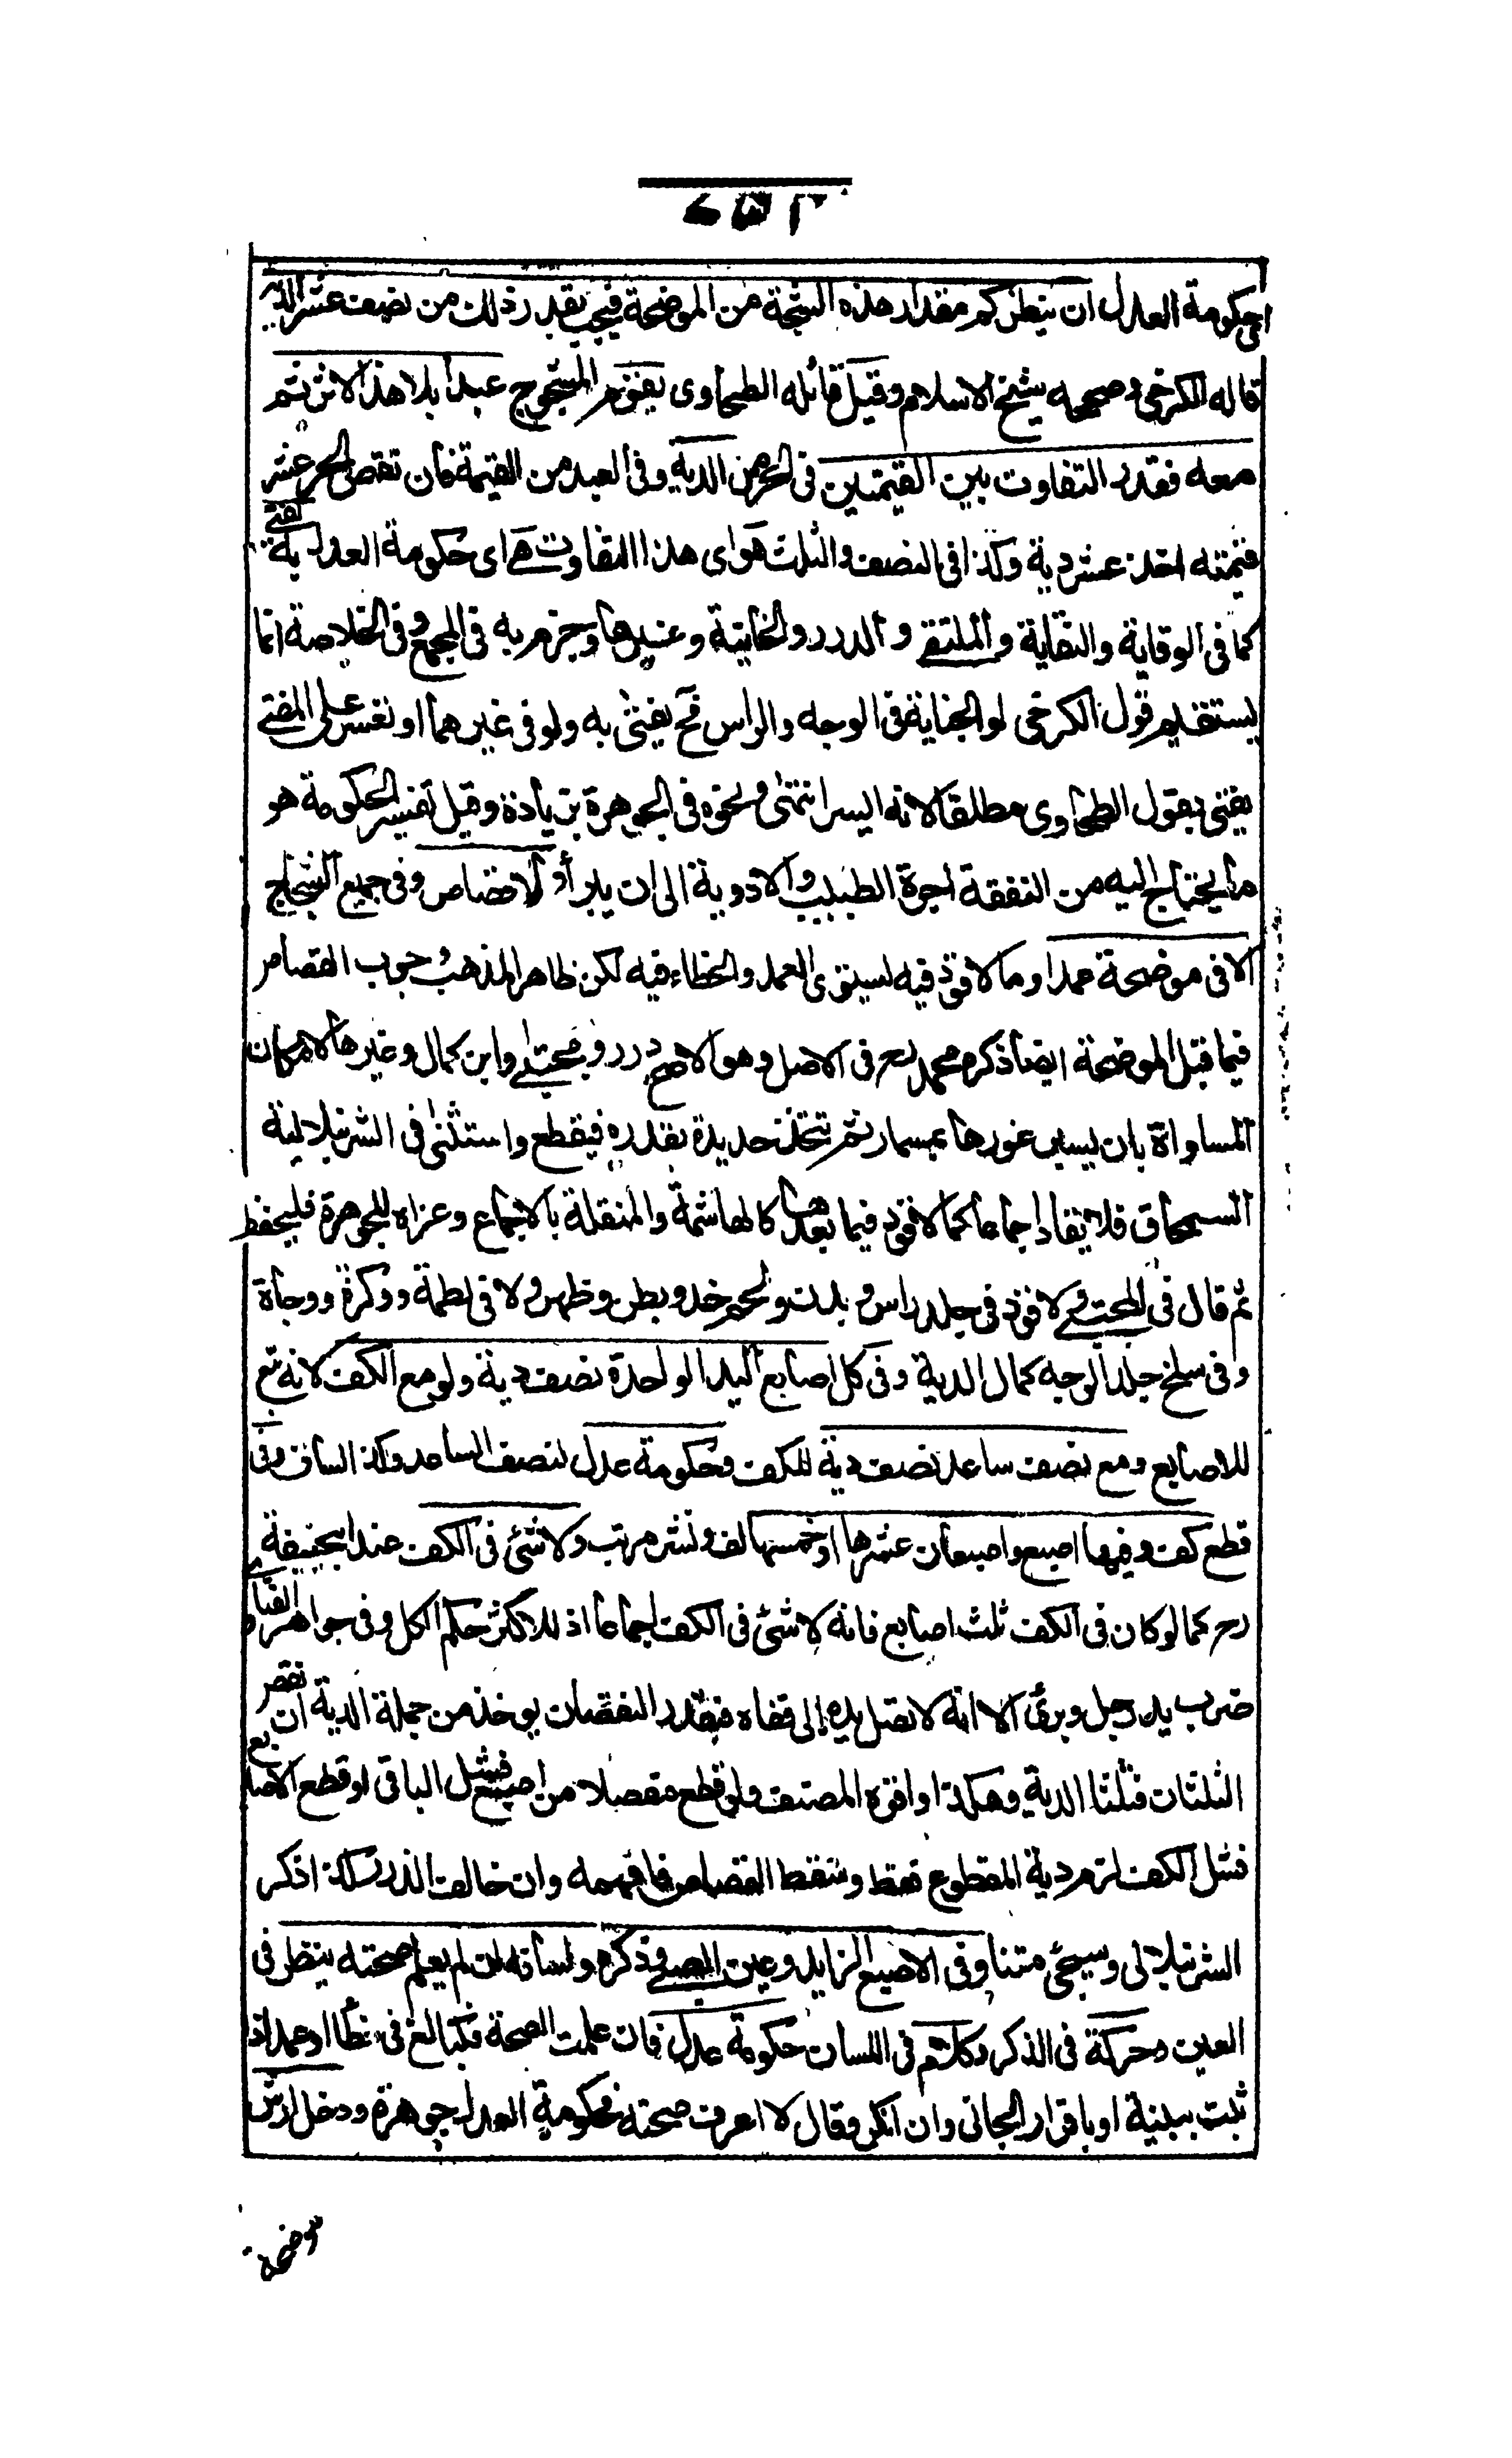 اى حكومة العدل ان ينظر كم مقدار هذه الشجة من الموضحة فيجب بقدر ذلك من نصف عشر الدية
قاله الكرخى وصححه شيخ الاسلام وقيل قائله الطحاوى يقوم المشجوج عبدا بلا هذا الاثر ثم
معه فقدر التفاوت بين القيمتين فى الحر من الدية وفى العبد من القيمة فان نقص الحر عشر
قيمته اخذ عشر دية وكذا فى النصف والثلث هو اى هذا التفاوت هى اى حكومة العدل به يفتى
كما فى الوقاية والنقاية والملتقى والدرر والخانية وغيرها وجزم به فى المجمع وفى الخلاصة انما
يستقيم قول الكرخى لو الجناية فى الوجه والراس فح يفتى به ولو فى غيرهما او تعسر على المفتى
يفتى بقول الطحاوى مطلقا لانه ايسر انتهى ونحوه فى الجوهرة بزيادة وقيل تفسير الحكومة هو
ما يحتاج اليه من النفقة اجرة الطبيب والادوية الى ان يبرأ ولا قصاص وفى جميع الشجاج
الا فى موضحة عمدا وما لا قود فيه يستوى العمد والخطاء فيه لكن ظاهر المذهب وجوب القصاص
فيما قبل الموضحة ايضا ذكره محمد رحه فى الاصل وهو الاصح درر ومجتبى وابن كمال وغيرها لامكان
المساواة بان يسبر غورها بمسبار ثم تتخذ حديدة بقدره فيقطع واستثنى فى الشرنبلالية
السمحاق فلا يقاد اجماعا كما لا قود فيما بعدها كالهاشمة والمنقلة بالاجماع وعزاه للجوهرة فليحفظ
ثم قال فى المجتبى لا قود فى جلد راس وبدن ولحم خد وبطن وظهر ولا فى لطمة ووكزة ووجأة
وفى سلخ جلد الوجه كمال الدية وفى كل اصابع اليد الواحدة نصف دية ولو مع الكف لانه تبع
للاصابع ومع نصف ساعد نصف دية للكف وحكومة عدل لنصف الساعد وكذا الساق وفى
قطع كف وفيها اصبع واصبعان عشرها او خمسها لف ونشر مرتب ولا شئ فى الكف عند ابيحنيفة
رحـ كما لو كان فى الكف ثلث اصابع فانه لا شئ فى الكف اجماعا اذ للاكثر حكم الكل وفى جواهر الفتاوى
ضرب يد رجل وبرئ الا انه لا تصل يده الى قفاه فبقدر النقصان يوخذ من جملة الدية ان نقص
الثلثان فثلثا الدية وهكذا واقره المصنف ولو قطع مفصلا من اصبع فشل الباقى او قطع الاصابع
فشل الكف لزم دية المقطوع فقط وسقط القصاص فافهمه وان خالف الدرر كذا ذكر
الشرنبلالى وسيجئ متنا وفى الاصبع الزايد وعين الصبى وذكره ولسانه ان لم يعلم صحته بنظر فى
العين وحركة فى الذكر وكلام فى اللسان حكومة عدل فان علمت الصحة فكبالغ فى خطأ او عمد اذا
ثبت ببينة او باقرار الجانى وان انكر وقال لا اعرف صحته فحكومة العدل جوهرة ودخل ارش
موضحة